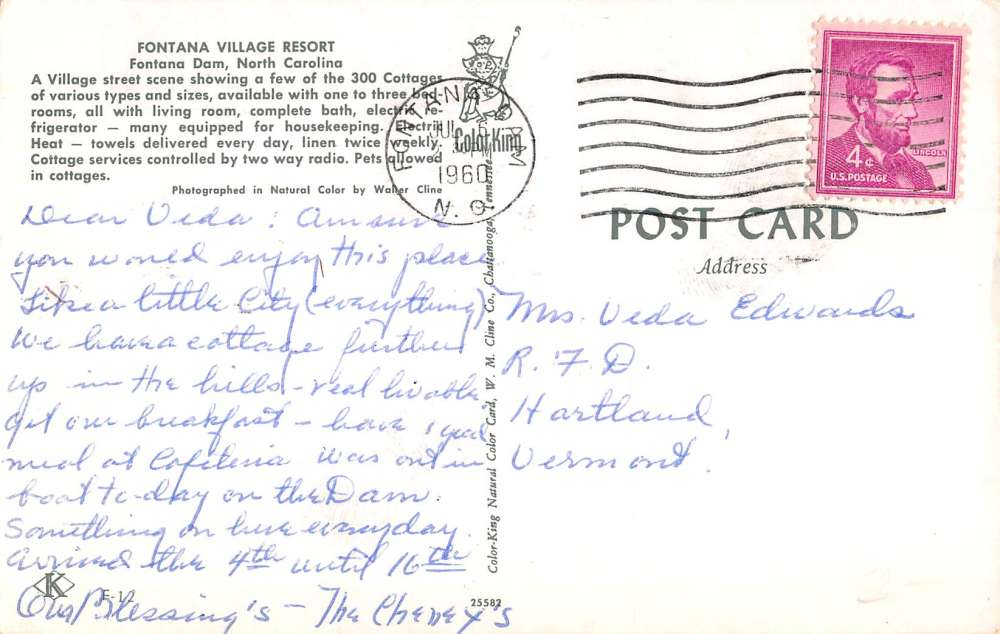 FONTANA VILLAGE RESORT
Fontana Dam, North Carolina
A Village street scene showing a few of the 300 Cottages
of various types and sizes, available with one to three bed-
rooms, all with living room, complete bath, electric re-
frigerator — many equipped for housekeeping. Electric
Heat — towels delivered every day, linen twice weekly.
Cottage services controlled by two way radio. Pets allowed
in cottages.
Photographed in Natural Color by Walter Cline
Dear Veda: Am sure
you would enjoy this place
Like a little City (everything)
We have a cottage further
up in the hills - real livable
get our breakfast - have 1 good
meal at Cafeteria was out in
boat to-day on the Dam.
Something on here everyday.
Arrived the 4th until 16th
Our Blessing's - The Cheney's
K
E-12
FONTANA DAM
JUL
1960
N. C.
Color King
Color-King Natural Color Card, W. M. Cline Co., Chattanooga, Tennessee
25582
4¢
LINCOLN
U.S. POSTAGE
POST CARD
Address
Mrs. Veda Edwards
R. F. D.
Hartland,
Vermont.